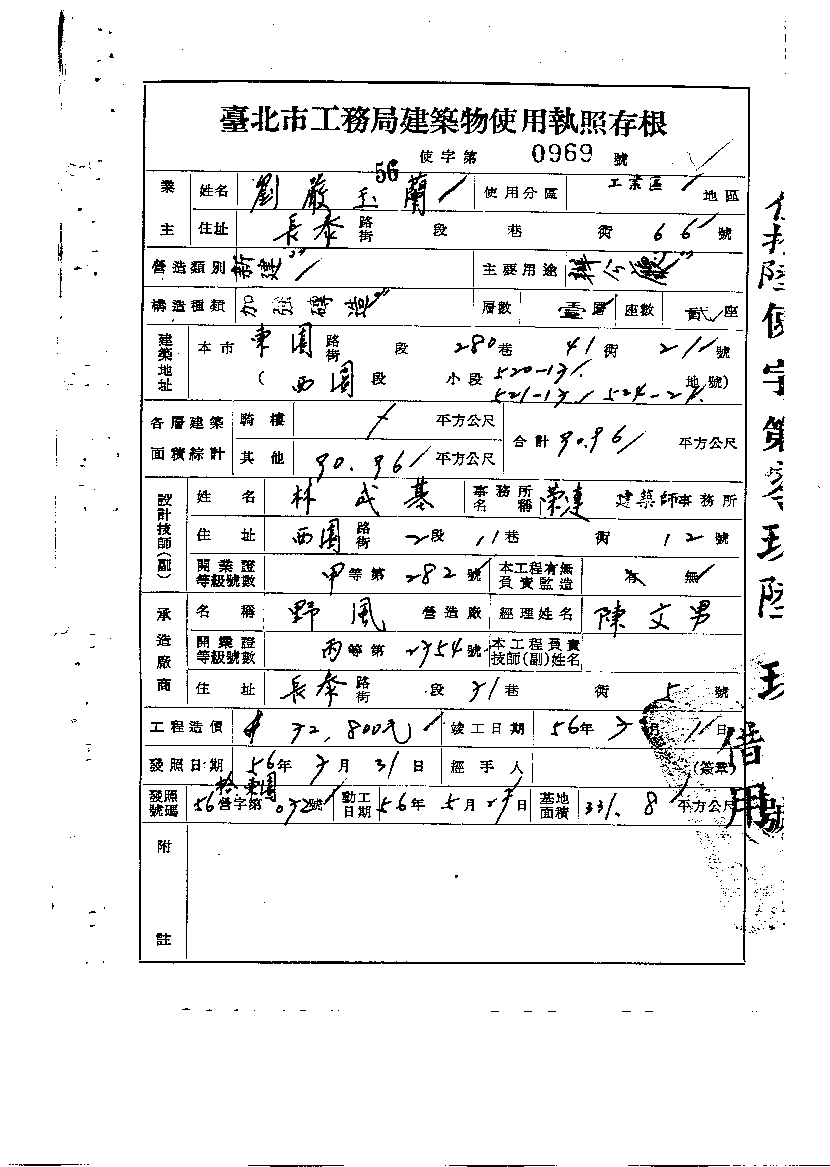 臺北市工務局建築物使用執照存根
56 使字第 0969 號
業主 姓名 劉嚴玉蘭 使用分區 工業區 地區
住址 長泰 路街 段 巷 街 66 號
營造類別 新建 主要用途 辦公廠
構造種類 加强磚造 層數 壹層 座數 貳座
建築地址 本市 東園 路街 段 280 巷 41 街 21 號
( 西園 段 小段 520-13 地號)
521-13 524-24
各層建築面積綜計 騎樓 平方公尺 合計 90.96 平方公尺
其他 90.96 平方公尺
設計技師(副) 姓名 林武基 事務所名稱 榮建 建築師事務所
住址 西園 路街 2段 11巷 街 12 號
開業證等級號數 甲等第 282 號 本工程有無負責監造 有 無
承造廠商 名稱 野風 營造廠 經理姓名 陳文男
開業證等級號數 丙等第 2354 號 本工程負責技師(副)姓名
住址 長泰 路街 段 31巷 街 5 號
工程造價 32,800元 竣工日期 56年 月 日
發照日期 56年 月 31日 經手人 (簽章)
發照號碼 56 營字第 032號 動工日期 56年 5月 日 基地面積 331.8 平方公尺
附註
借用